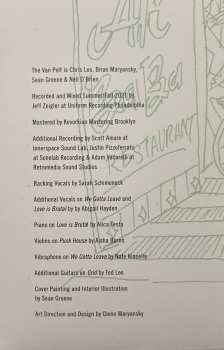 Art
Bar
RESTAURANT
The Van Pelt is Chris Leo, Brian Maryansky,
Sean Greene & Neil O'Brien
Recorded and Mixed Summer/Fall 2021 by
Jeff Zeigler at Uniform Recording Philadelphia
Mastered by Kevorkian Mastering Brooklyn
Additional Recording by Scott Amore at
Innerspace Sound Lab, Justin Pizzoferrato
at Sonelab Recording & Adam Vaccarelli at
Retromedia Sound Studios
Backing Vocals by Sarah Schimeneck
Additional Vocals on We Gotta Leave and
Love is Brutal by by Abigail Hayden
Piano on Love is Brutal by Alica Testa
Violins on Punk House by Aisha Burns
Vibraphone on We Gotta Leave by Nate Kinsella
Additional Guitars on Grid by Ted Leo
Cover Painting and Interior Illustration
by Sean Greene
Art Direction and Design by Glenn Maryansky